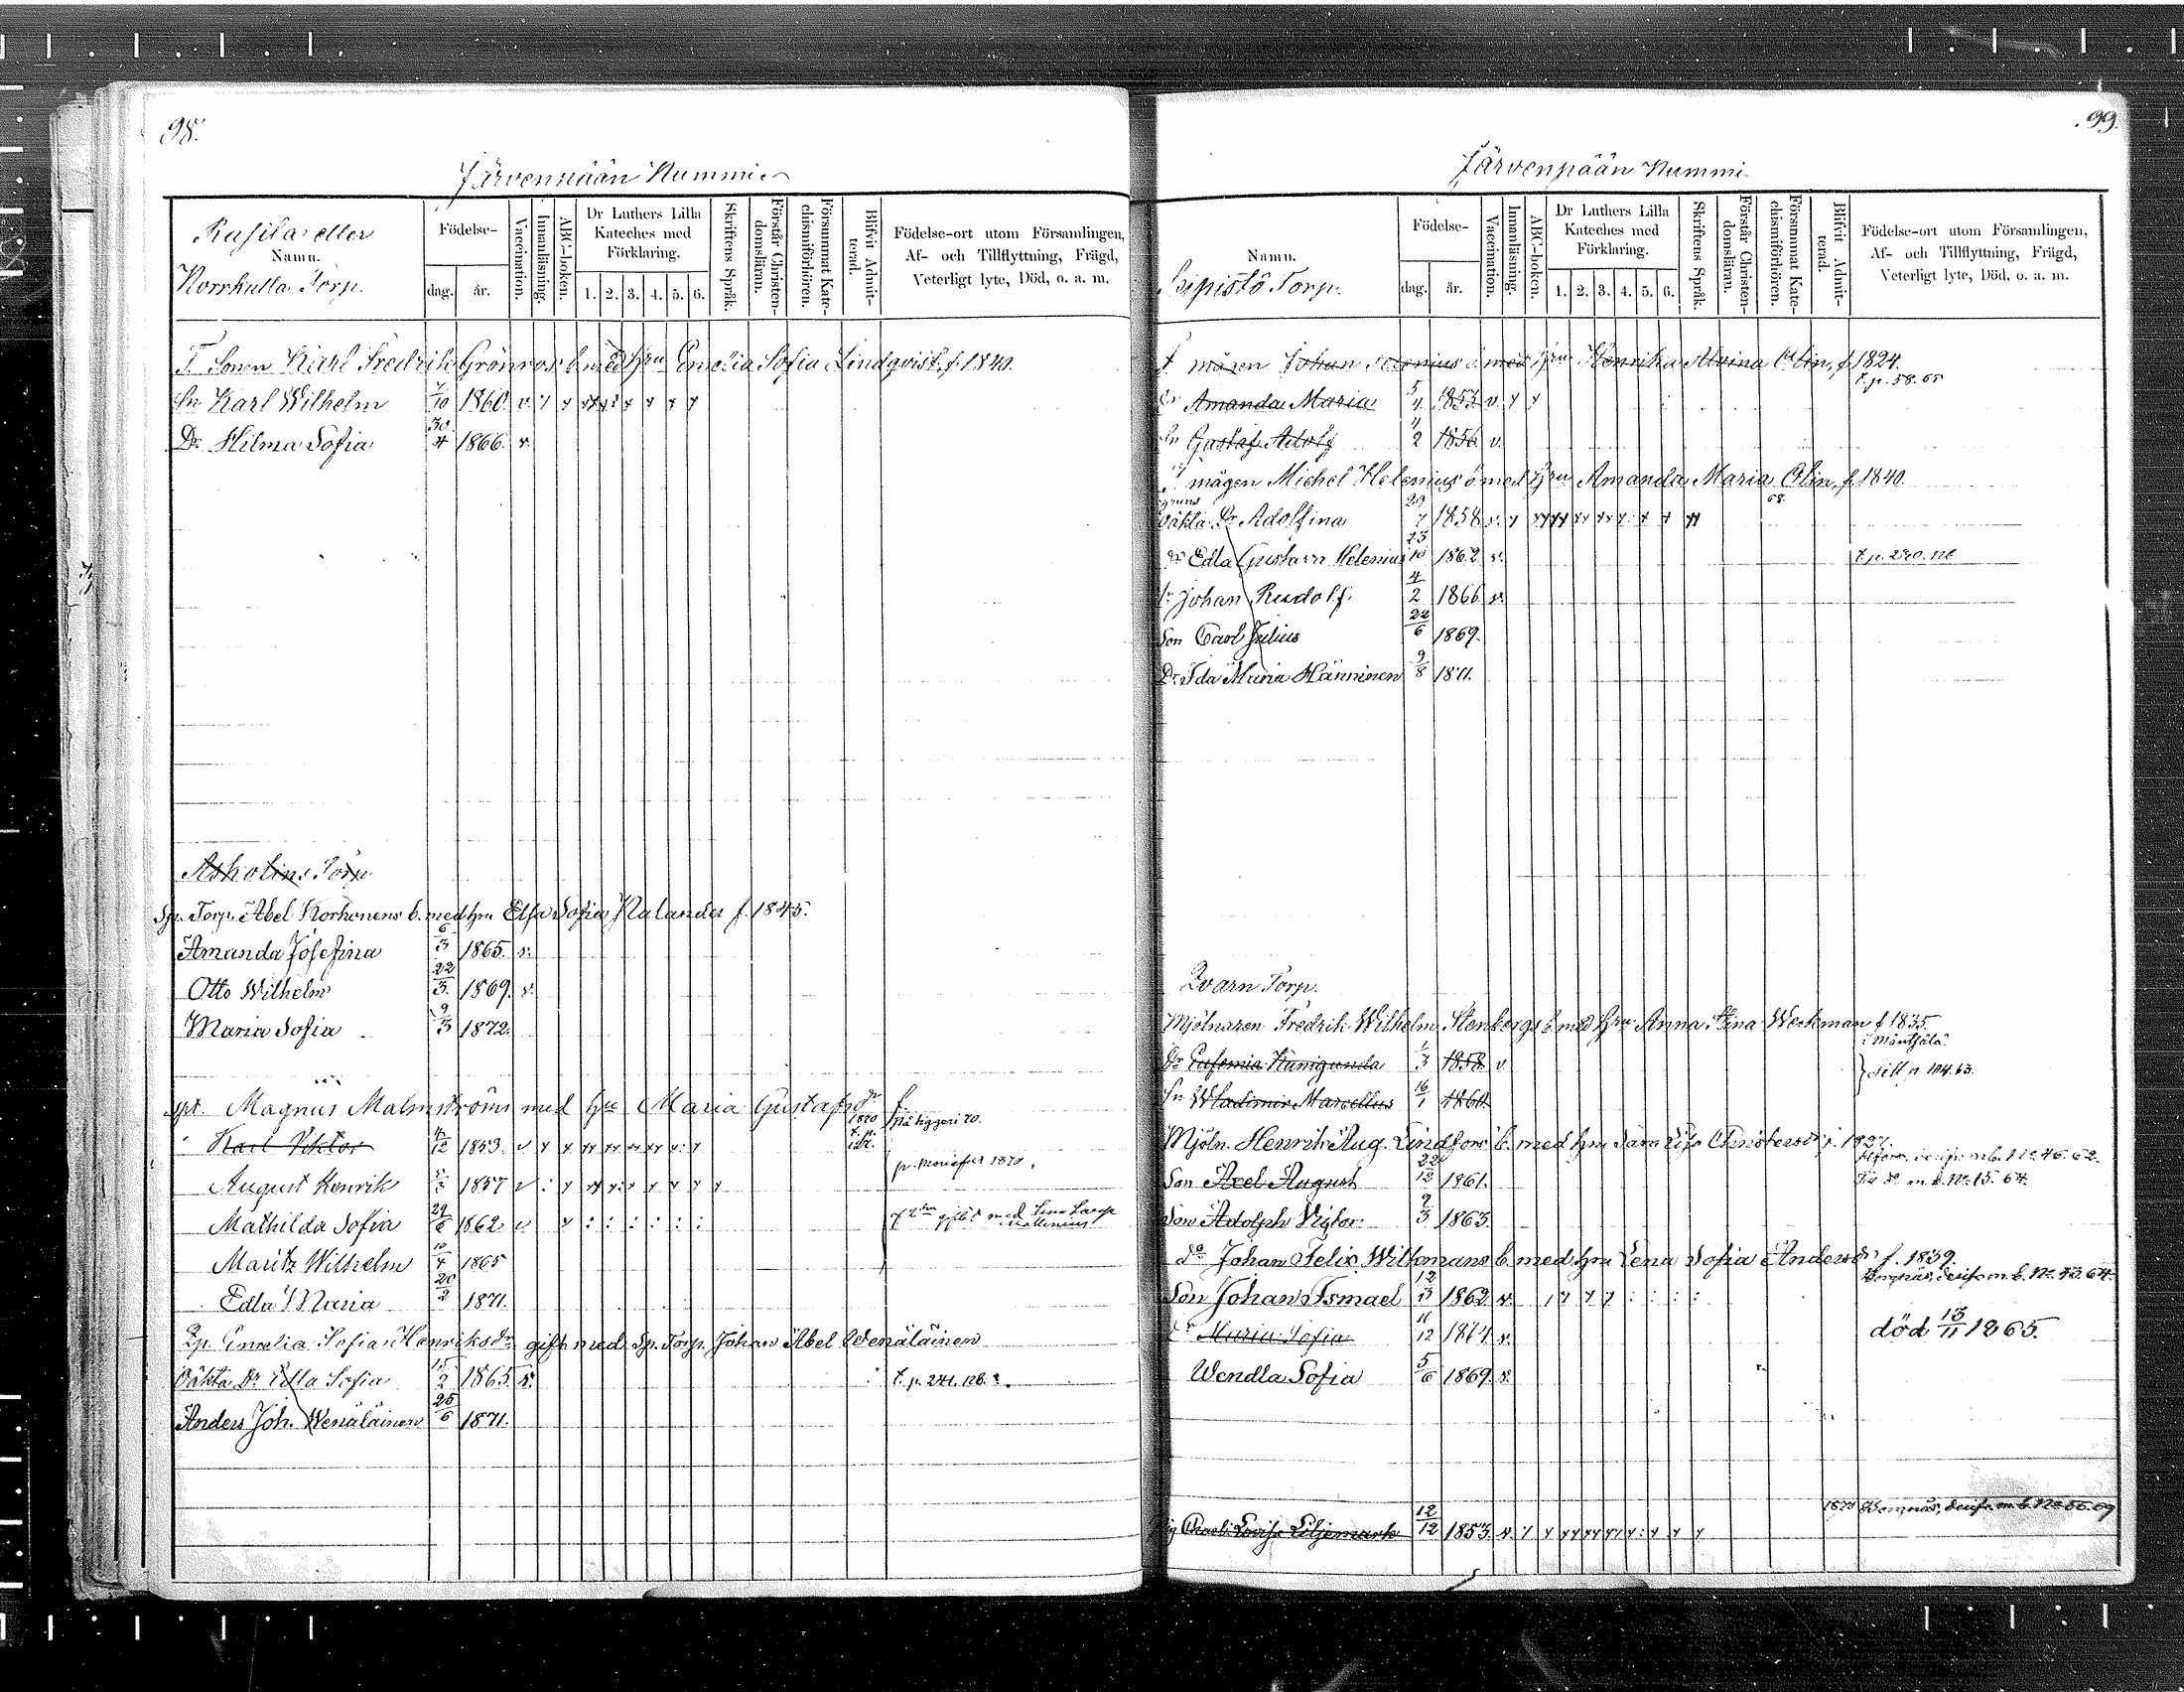 98.
Järvenpään Nummi
Rasila eller
Namn.
Norrkulla Torp.
Födelse-
dag. år.
Vaccination.
Innanläsning.
ABC-boken.
Dr Luthers Lilla Kateches med Förklaring.
1. 2. 3. 4. 5. 6.
Skriftens Språk.
Förstår Christendomsläran.
Försummat Katechismiförhören.
Blifvit Admitterad.
Födelse-ort utom Församlingen,
Af- och Tillflyttning, Frägd,
Veterligt lyte, Död, o. a. m.
T. Sonen Karl Fredrik Grönros b. med hru Emelia Sofia Lindqvist, f. 1840.
Sn Karl Wilhelm 7/10 1860. v.
Dr Hilma Sofia 30/4 1866. v.
Askolins Torp.
Sp. Torp. Abel Korhonens b. med hru Elsa Sofia Kalander f. 1845.
Amanda Josefina 6/3 1865. v.
Otto Wilhelm 22/3 1869. v.
Maria Sofia 9/3 1872.
Magnus Malmströms med hru Maria Gustafsdr f.
Karl Viktor 4/12 1853. v 1870
August Henrik 1857 v
Mathilda Sofia 29/6 1862. v
Maritz Wilhelm 10/4 1865
Edla Maria 20/2 1871.
Emelia Sofia Henriksdr gift med Sp. Torp. Johan Abel Wenäläinen
Oäkta Dr Edla Sofia 15/2 1865. v. T. p. 241. nb.
Anders Joh. Wenäläinen 25/6 1871.
99.
Järvenpään Nummi
Namn.
Torp.
Födelse-
dag. år.
Vaccination.
Innanläsning.
ABC-boken.
Dr Luthers Lilla Kateches med Förklaring.
1. 2. 3. 4. 5. 6.
Skriftens Språk.
Förstår Christendomsläran.
Försummat Katechismiförhören.
Blifvit Admitterad.
Födelse-ort utom Församlingen,
Af- och Tillflyttning, Frägd,
Veterligt lyte, Död, o. a. m.
mågen Johan med hru Henrika Alvina Olin, f. 1824.
T. p. 58. 65
Dr Amanda Maria 5/4 1853. v
Sn Gustaf Adolf 11/2 1856 v.
mågen Michel Helenius med hru Amanda Maria Olin, f. 1840.
Oäkta Dr Adolfina 29/7 1858
Dr Edla Gustava Helenius 23/10 1862 v. T. p. 240. nb
Sn Johan Rudolf. 4/2 1866 v.
Son Carl Julius 22/6 1869.
Dr Ida Maria Hänninen 9/8 1871.
Qvarn Torp.
Mjölnaren Fredrik Wilhelm Stenbergs b. med hru Anna Stina Weckman f. 1835.
i Mäntsälä.
Dr Eufemia Kunigunda 1/3 1858 v
Sn Wladimir Marcellus 16/1 1860.
Mjöln. Henrik Aug. Lindfors b. med hru
Son Axel August 22/12 1861.
Son Adolph Victor 9/3 1863.
do Johan Felix Wilkmans b. med hru Lena Sofia Andersdr f. 1839.
Son Johan Ismael 12/3 1862. v.
Dr Maria Sofia 11/12 1864. v. död 13/11 1865.
Wendla Sofia 5/6 1869. v.
Lovisa Liljemark 12/12 1853. v. 1870